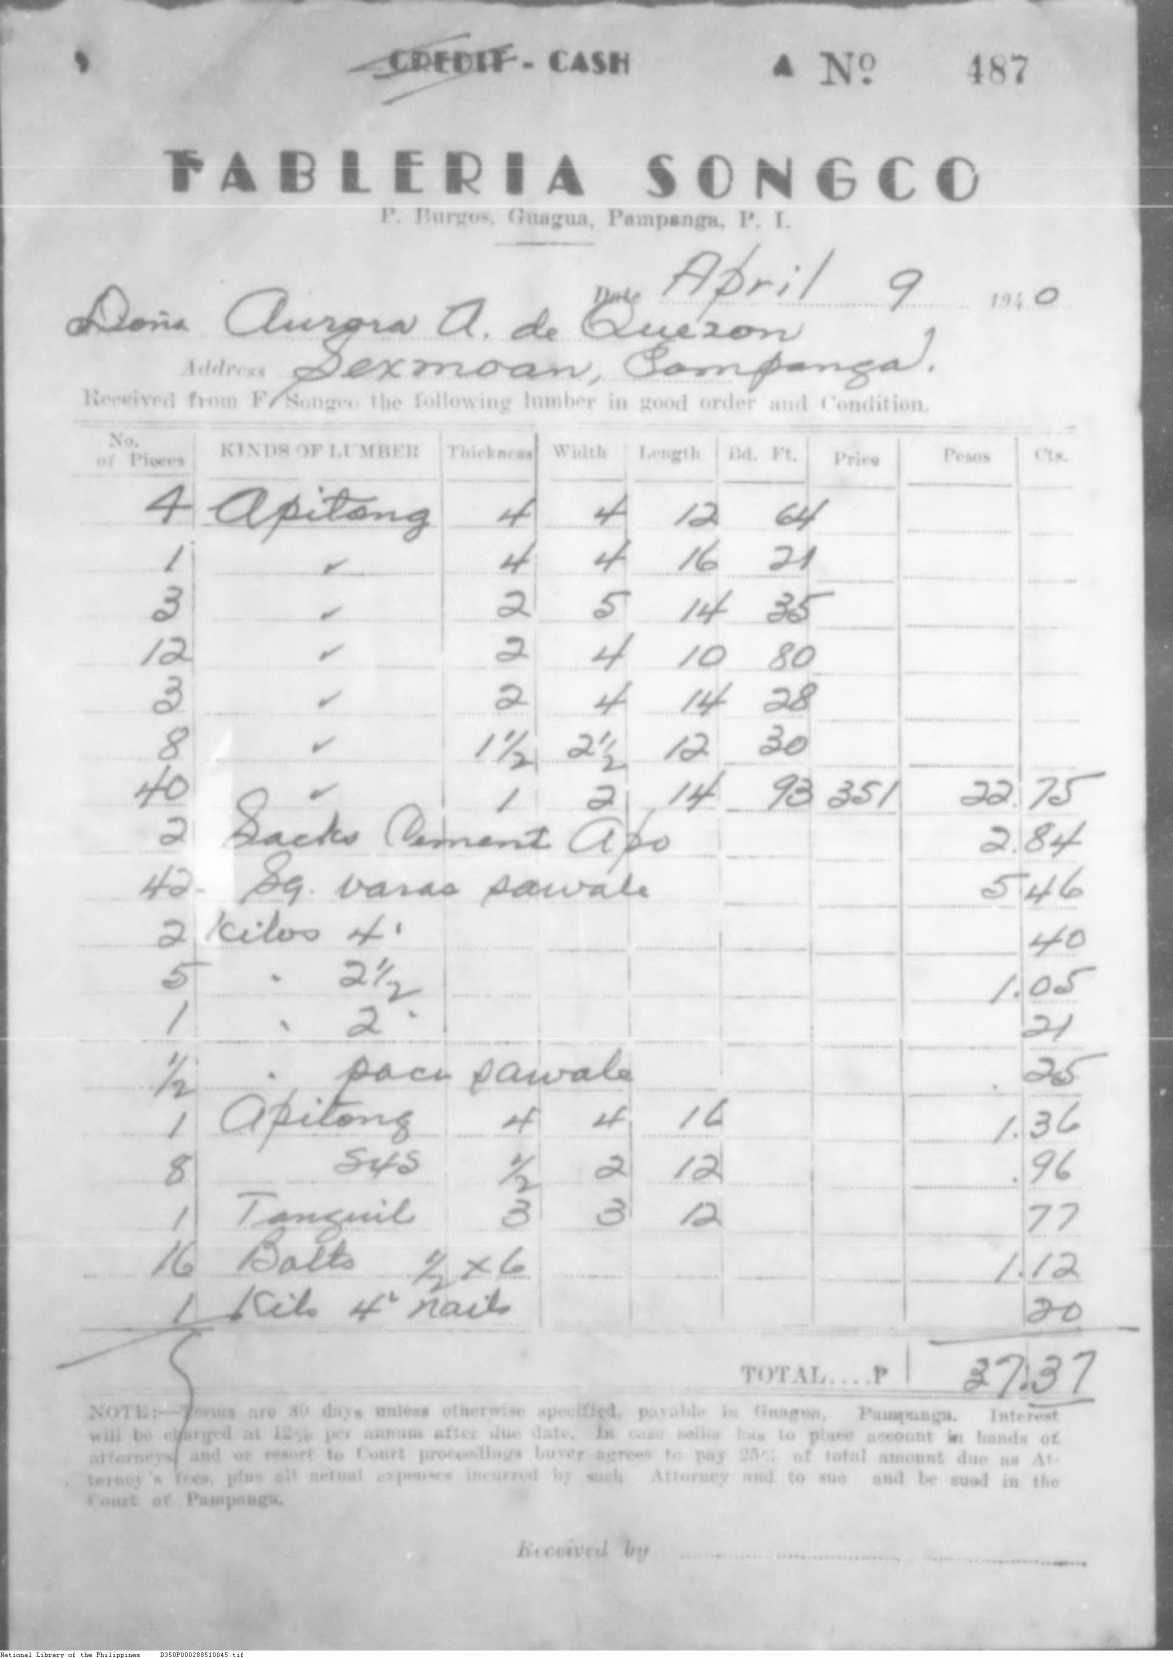 CREDIT - CASH
▲ Nº 487
TABLERIA SONGCO
P. Burgos, Guagua, Pampanga, P. I.
Date April 9 1940
Doña Aurora A. de Quezon
Address Sexmoan, Pampanga.
Received from F. Songco the following lumber in good order and Condition.
No. of Pieces KINDS OF LUMBER Thickness Width Length Bd. Ft. Price Pesos Cts.
4 Apitong 4 4 12 64
1 " 4 4 16 21
3 " 2 5 14 35
12 " 2 4 10 80
3 " 2 4 14 28
8 " 1 1/2 2 1/2 12 30
40 " 1 2 14 93 351 22.75
2 Sacks Cement Apo 2.84
42 - Sq. varas sawale 5 46
2 Kilos 4" 40
5 " 2 1/2 1.05
1 " 2" 21
1/2 " sawale . 25
1 Apitong 4 4 16 1.36
8 S4S 1/2 2 12 .96
1 Tanguil 3 3 12 77
16 Bolts 1/2 x 6 1.12
1 Kilo 4" nails 20
TOTAL....P 37.37
NOTE:—Terms are 30 days unless otherwise specified, payable in Guagua, Pampanga. Interest
will be charged at 12% per annum after due date. In case seller has to place account in hands of
attorneys and or resort to Court proceedings buyer agrees to pay 25% of total amount due as At-
torney's fees, plus all actual expenses incurred by such Attorney and to sue and be sued in the
Court of Pampanga.
Received by
National Library of the Philippines D350P000288510045.tif